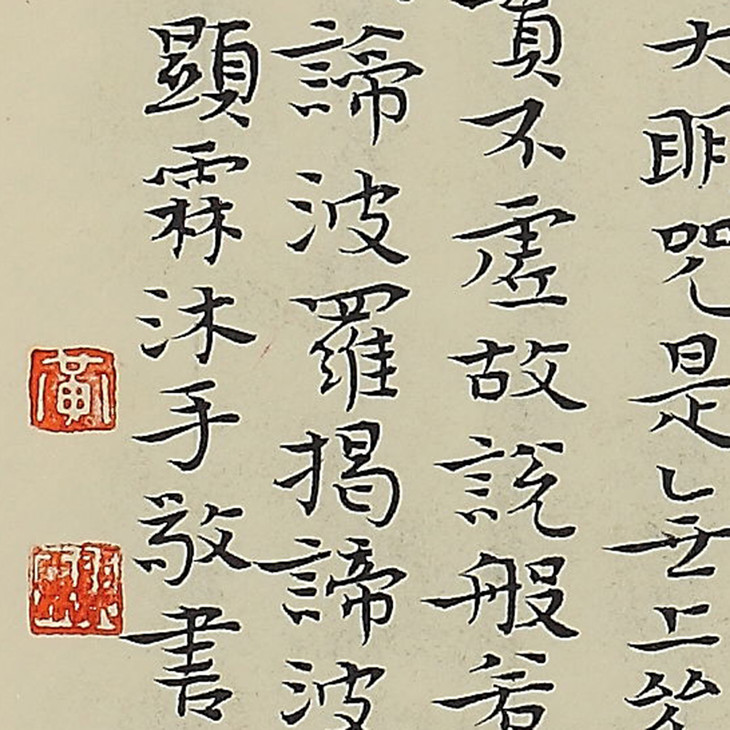 大明咒是無上
實不虛故說般若
諦波羅揭諦波
顯霖沐手敬書
黃